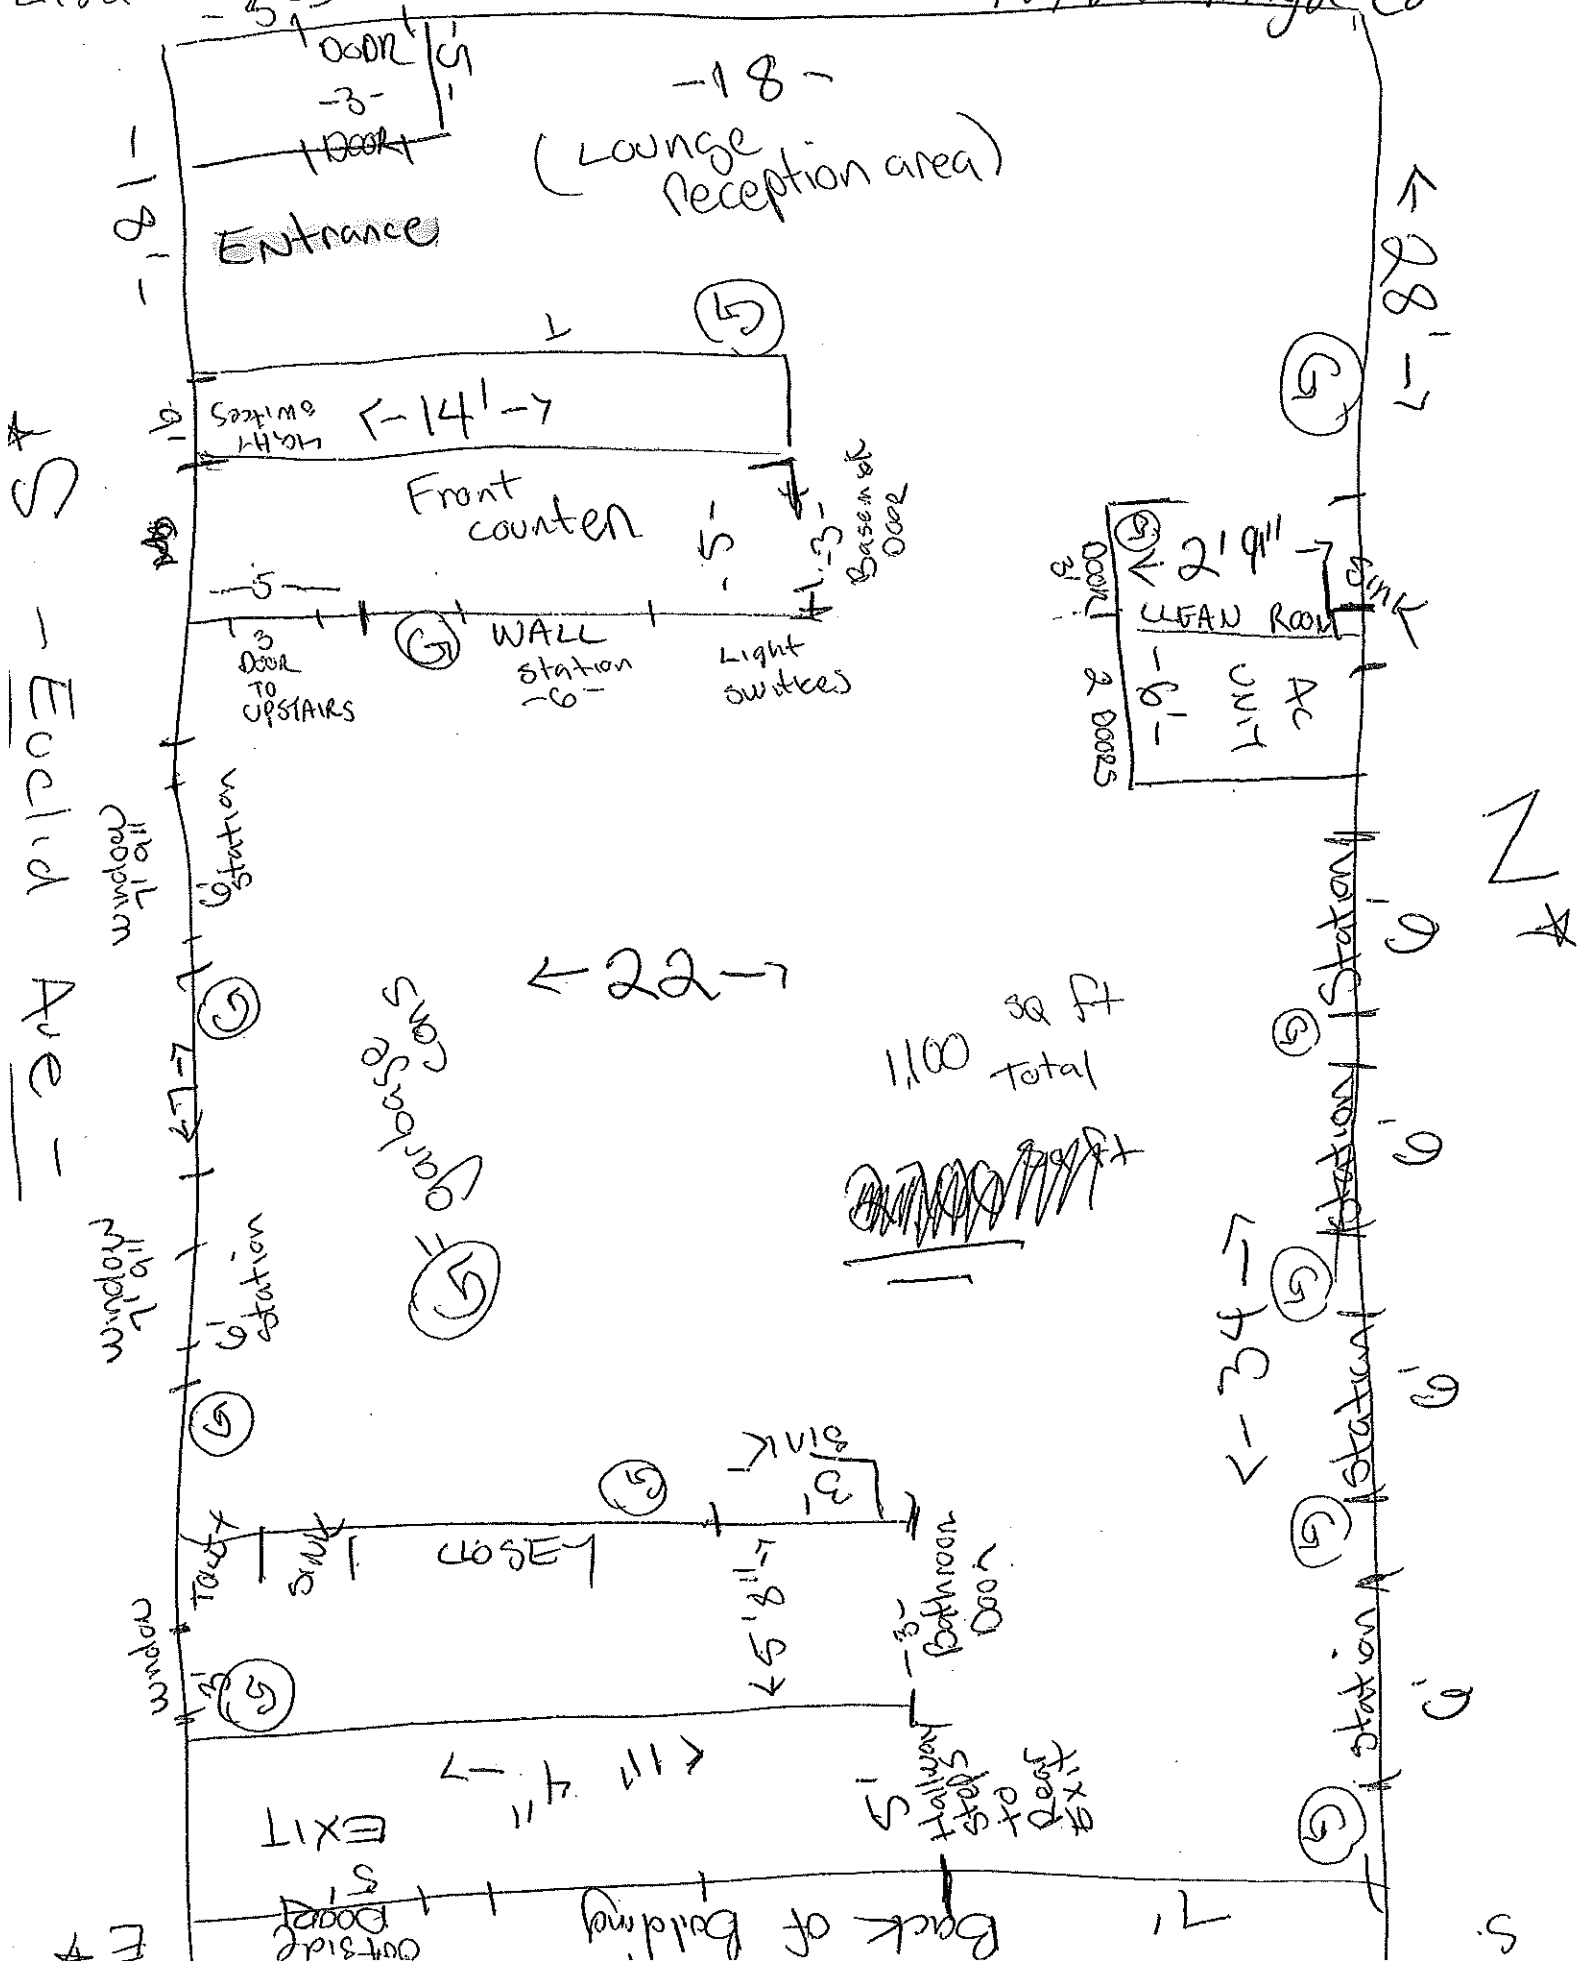 -3-
DOOR
-5-
-3-
DOOR
-18-
(Lounge
Reception area)
-18'-
Entrance
<-28'->
G
G
6'
LIGHT
switces
<-14'->
Front
counter
-5-
-3-
Basement
DOOR
-5-
3
DOOR
TO
UPSTAIRS
G
WALL
station
-6-
Light
switces
G
<2'9"->
Sink
DOOR
3'
CLEAN ROOM
2 DOORS
-6'-
AC
UNIT
S -Euclid Ave-
N
window
7'9"
6'
station
G
<-22->
1,100 sq ft
Total
G = Garbage
cans
<-7->
window
7'9"
6'
station
G
station
6'
G
station
6'
G
station
6'
G
station
6'
G
<-34->
sink
3'
G
SINK
CLOSET
<5'8"->
-3-
Bathroom
Door
window
3'
G
<11' 4"->
5'
Hallway
steps
to
Rear
exit
EXIT
5'
outside
Door
Back of Building
7'
E
S.